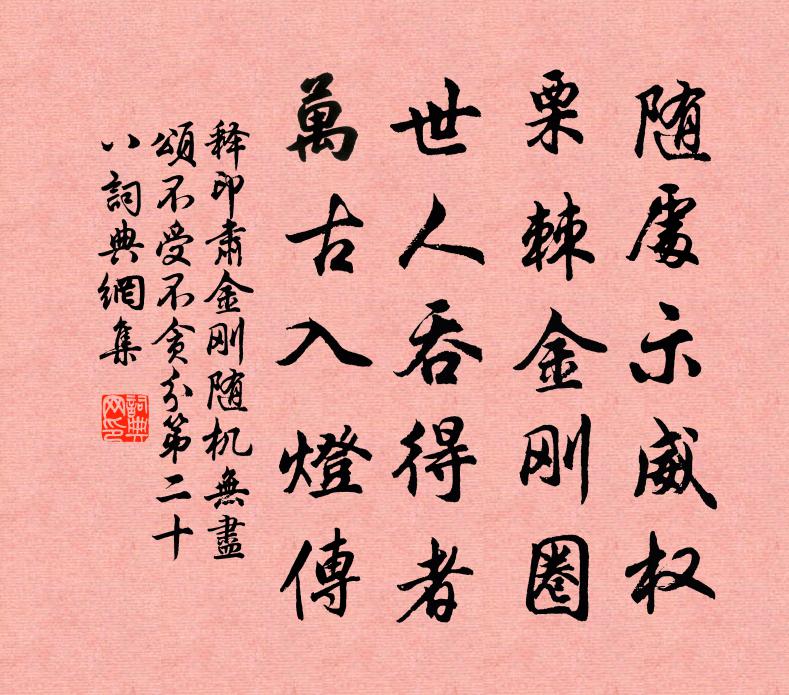 随處示威权
栗棘金刚圈
世人吞得者
萬古入燈傳
释印肃金刚随机無盡
頌不受不贪分第二十
八詞典網集
詞典
网印